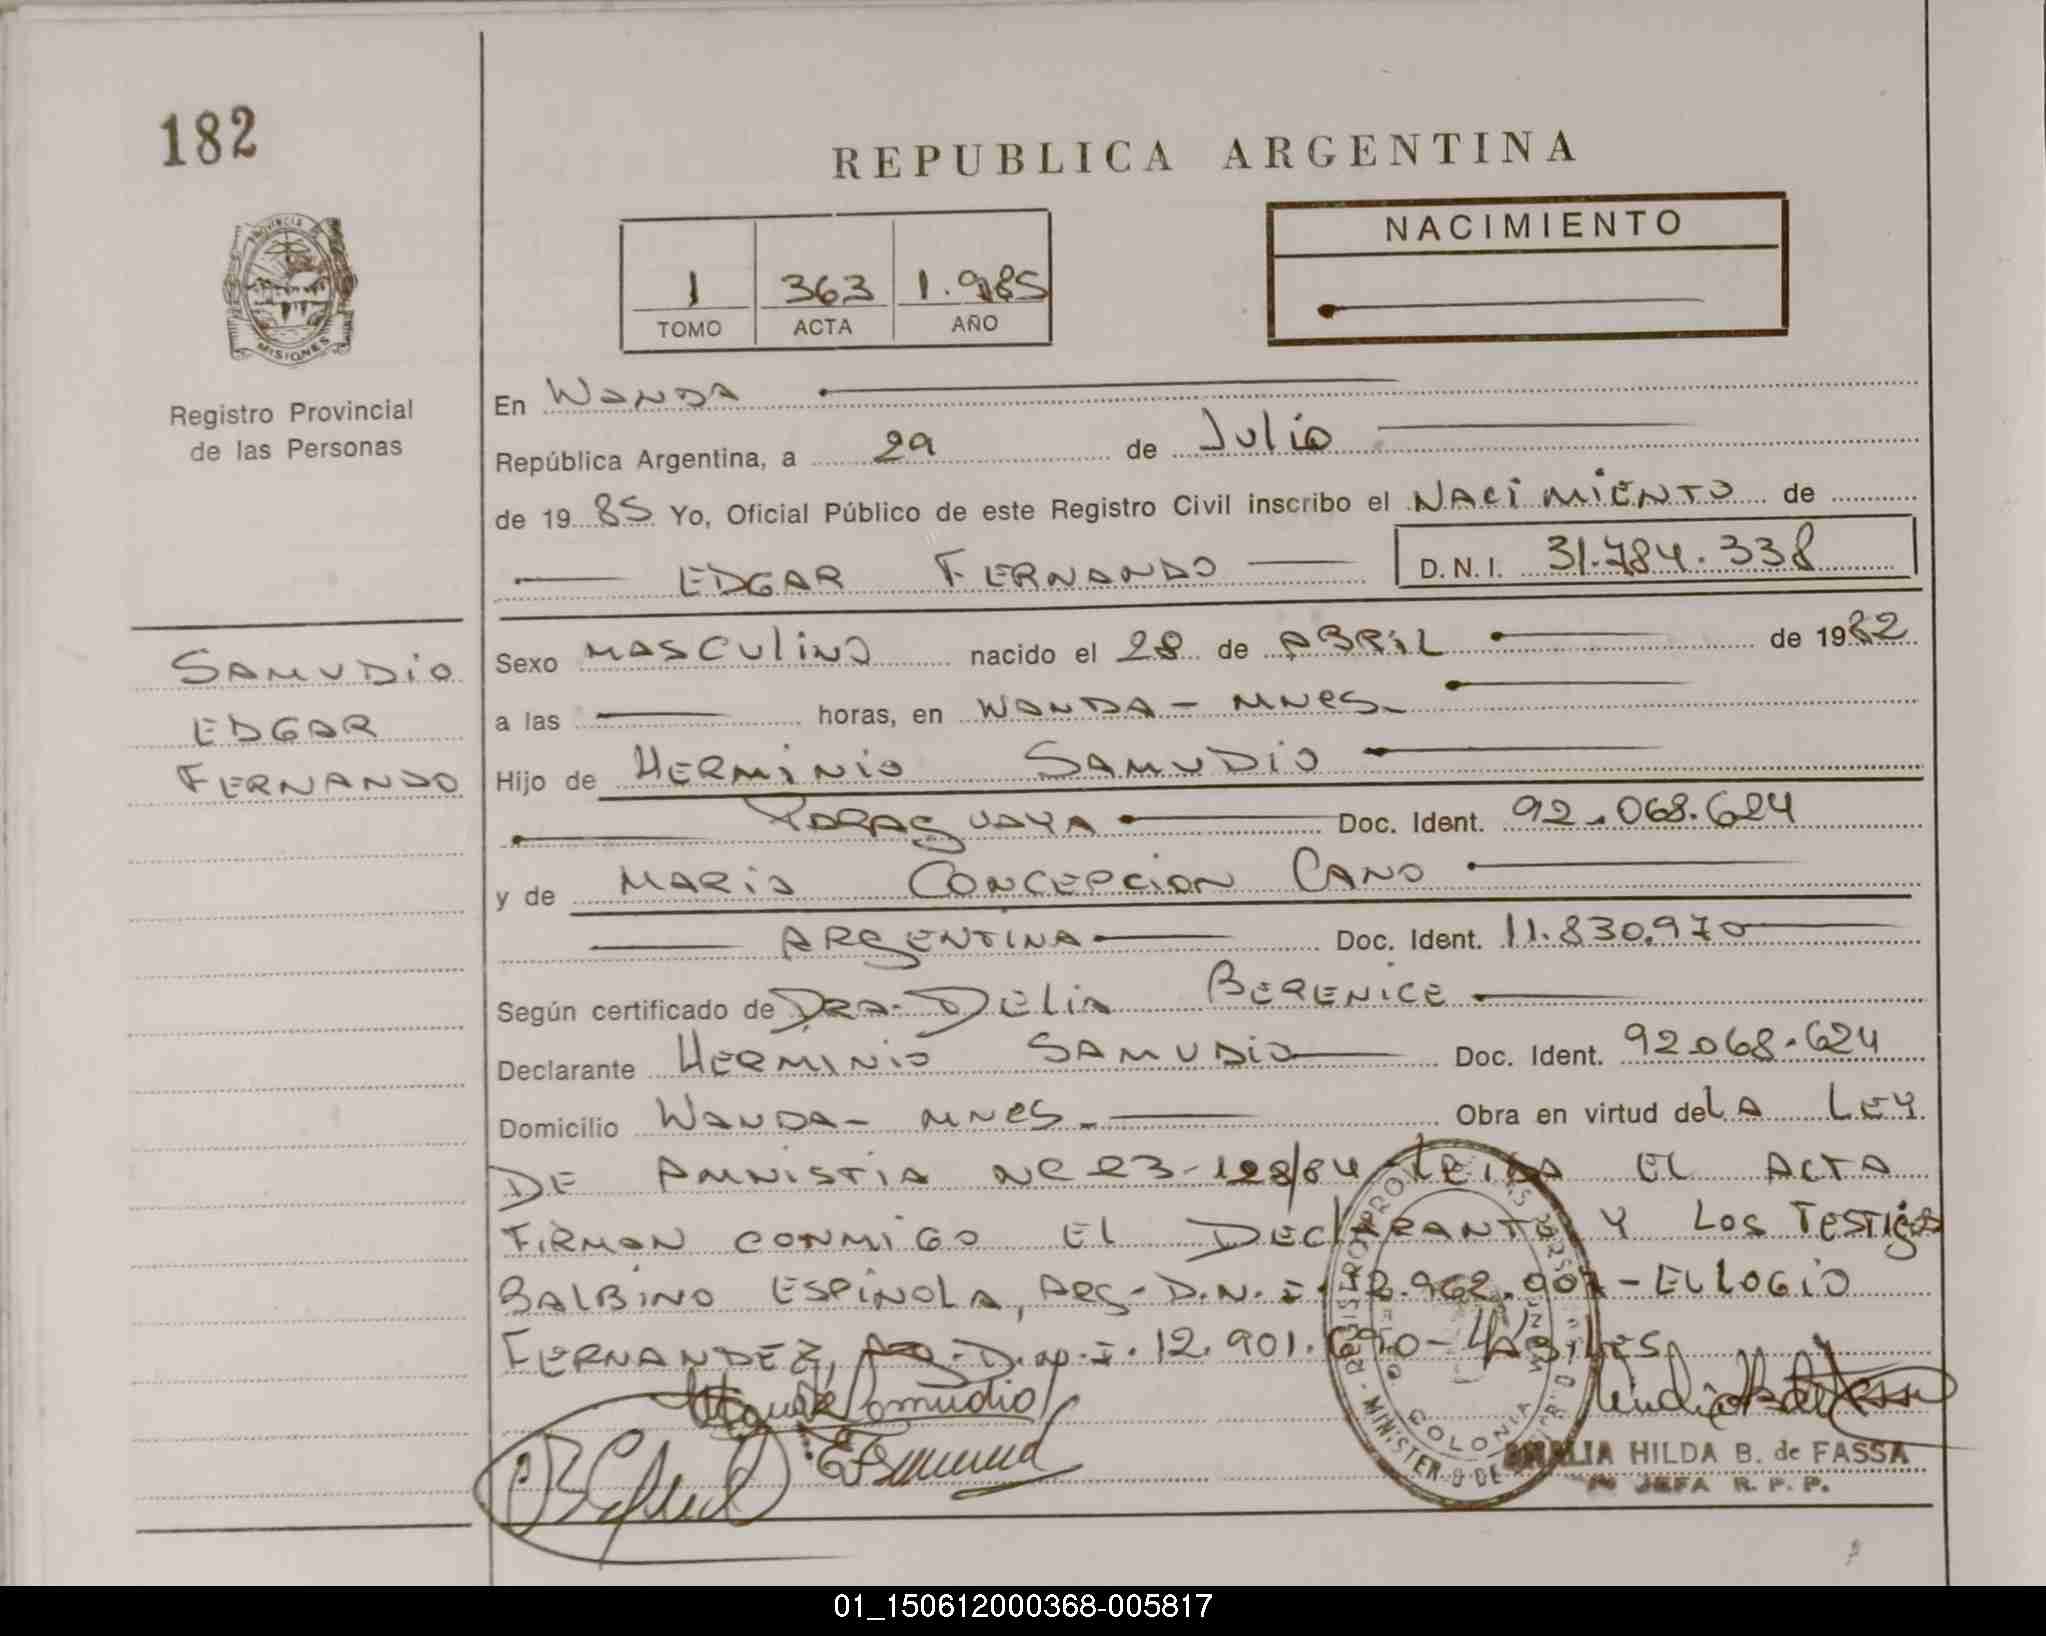 182
REPUBLICA ARGENTINA
NACIMIENTO
1 363 1.985
TOMO ACTA AÑO
PROVINCIA DE
MISIONES
Registro Provincial
de las Personas
En WANDA
República Argentina, a 29 de Julio
de 1985 Yo, Oficial Público de este Registro Civil inscribo el NACIMIENTO de
EDGAR FERNANDO D.N.I. 31.784.338
SAMUDIO
EDGAR
FERNANDO
Sexo MASCULINO nacido el 28 de ABRIL de 1982
a las horas, en WANDA - MNES.
Hijo de HERMINIO SAMUDIO
PARAGUAYA Doc. Ident. 92.068.624
y de MARIA CONCEPCION CANO
ARGENTINA Doc. Ident. 11.830.970
Según certificado de DRA. DELIA BERENICE
Declarante HERMINIO SAMUDIO Doc. Ident. 92.068.624
Domicilio WANDA - MNES. Obra en virtud de LA LEY
DE AMNISTIA Nº 23-128/84 LEIDA EL ACTA
FIRMAN CONMIGO EL DECLARANTE Y LOS TESTIGOS
BALBINO ESPINOLA, ARG- D.N.I. 12.962.007 - EULOGIO
FERNANDEZ, ARG-D.N.I. 12.901.690 - HABILES
Samudio
AMALIA HILDA B. de FASSA
JEFA R. P. P.
01_150612000368-005817